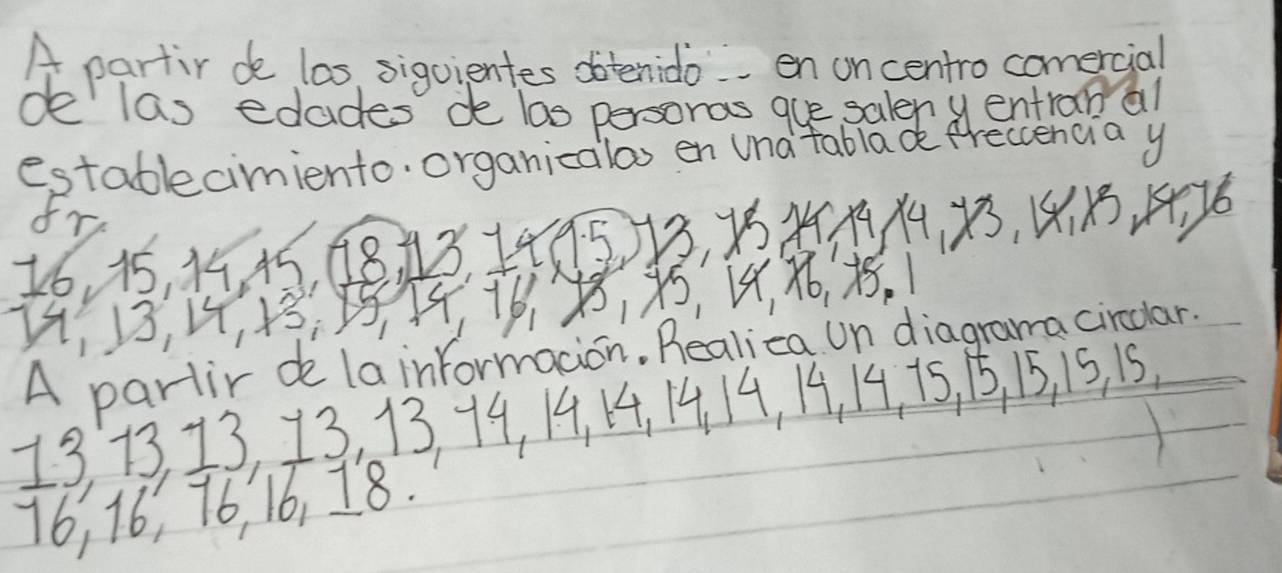 A partir de las siguientes obtenido... en un centro comercial
de las edades de las personas que salen y entran al
establecimiento. organicalas en una tabla de freccencia y
fr.
16, 15, 14, 15, 18, 13, 14, 15, 13, 15, 14, 14, 14, 13, 14, 15, 14, 16
14, 13, 14, 13, 15, 14, 16, 13, 15, 14, 16, 15. 1
A partir de la información. Realica un diagrama circular.
13, 13, 13, 13, 13, 14, 14, 14, 14, 14, 14, 14, 15, 15, 15, 15, 15,
16, 16, 16, 16, 18.